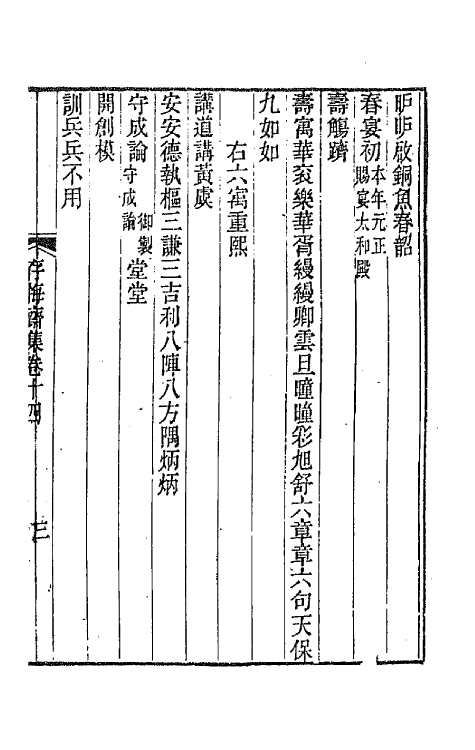 昈昈啟銅魚春韶
春宴初本年元正賜宴太和殿
壽觴躋
壽寓華袞樂華胥縵縵卿雲旦曈曈彩旭舒六章章六句天保
九如如
右六寓重熙
講道講黃虞
安安德執樞三謙三吉利八陣八方隅炳炳
守成論御製守成論堂堂
開創模
訓兵兵不用
存悔齋集卷十四
三